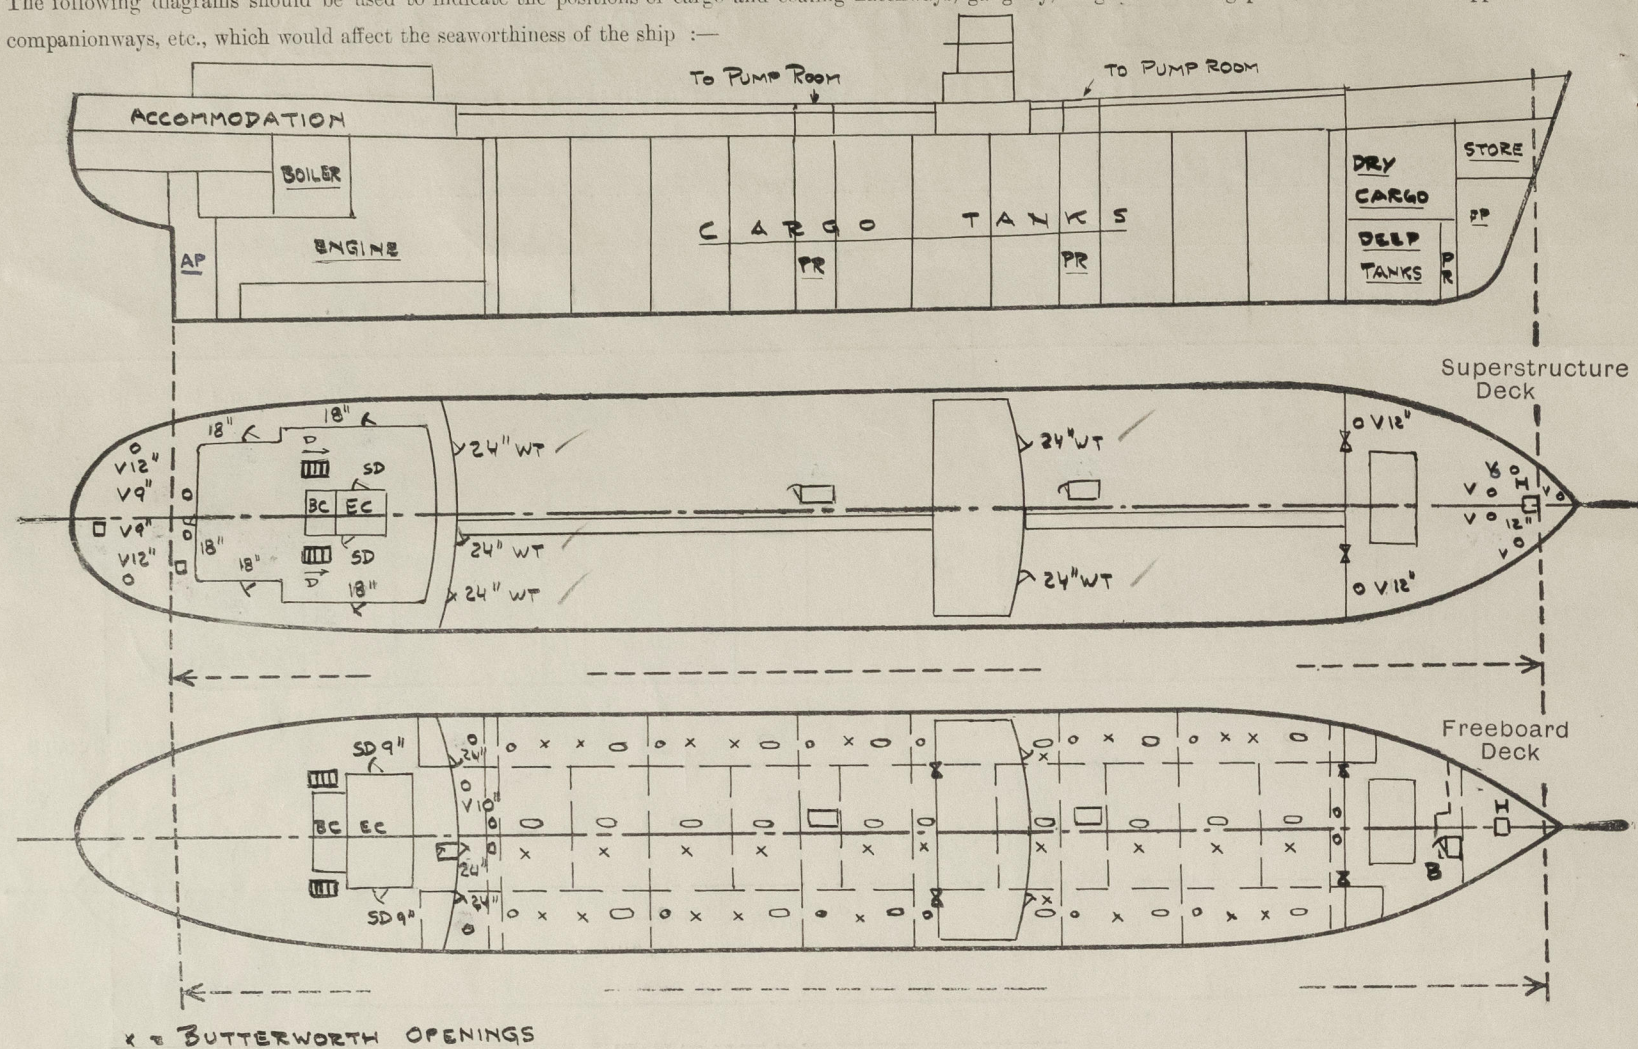 companionways, etc., which would affect the seaworthiness of the ship :—
TO PUMP ROOM
TO PUMP ROOM
ACCOMMODATION
BOILER
DRY
CARGO
STORE
CARGO TANKS
AP
ENGINE
PR
PR
DEEP
TANKS
PR
FP
Superstructure
Deck
18"
18"
V12"
V9"
V9"
V12"
D
SD
BC EC
SD
D
18"
18"
18"
24" WT
24" WT
24" WT
24" WT
24" WT
O V12"
O V12"
V
H
V
V
V
12"
V
Freeboard
Deck
SD 9"
BC EC
SD 9"
24"
24"
24"
H
B
x = BUTTERWORTH OPENINGS